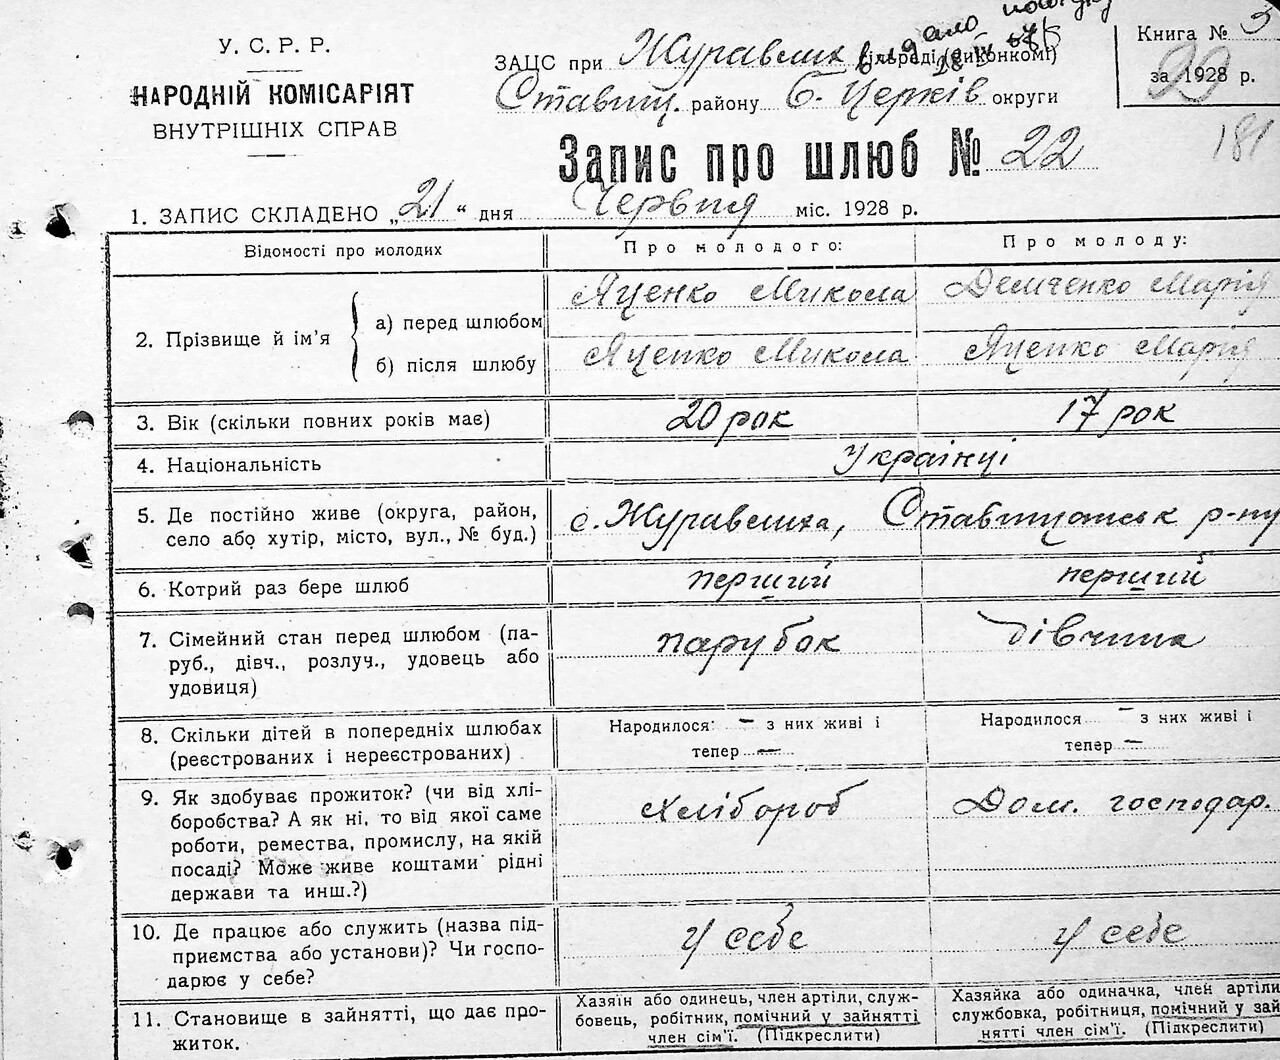 У. С. Р. Р.
НАРОДНІЙ КОМІСАРІЯТ
ВНУТРІШНІХ СПРАВ
ЗАЦС при Журавлих сільраді (виконкомі)
Ставищ. району Б. Церків округи
Книга № 3
за 1928 р.
22
181
Запис про шлюб № 22
1. ЗАПИС СКЛАДЕНО „21“ дня Червня міс. 1928 р.
Відомості про молодих
Про молодого:
Про молоду:
2. Прізвище й ім’я
а) перед шлюбом
Яценко Микола
Демченко Марія
б) після шлюбу
Яценко Микола
Яценко Марія
3. Вік (скільки повних років має)
20 рок
17 рок
4. Національність
Українці
5. Де постійно живе (округа, район,
село або хутір, місто, вул., № буд.)
с. Журавлиха, Ставищанськ р-ну
6. Котрий раз бере шлюб
перший
перший
7. Сімейний стан перед шлюбом (па-
руб., дівч., розлуч., удовець або
удовиця)
парубок
дівчина
8. Скільки дітей в попередніх шлюбах
(реєстрованих і нереєстрованих)
Народилося: — з них живі і
тепер —
Народилося — з них живі і
тепер —
9. Як здобуває прожиток? (чи від хлі-
боробства? А як ні, то від якої саме
роботи, ремества, промислу, на якій
посаді? Може живе коштами рідні
держави та инш.?)
Хлібороб
Дом. господар.
10. Де працює або служить (назва під-
приємства або установи)? Чи госпо-
дарює у себе?
У себе
У себе
11. Становище в зайнятті, що дає про-
житок.
Хазяїн або одинець, член артіли, служ-
бовець, робітник, помічний у зайнятті
член сім’ї. (Підкреслити)
Хазяйка або одиначка, член артіли
службовка, робітниця, помічний у зай-
нятті член сім’ї. (Підкреслити)